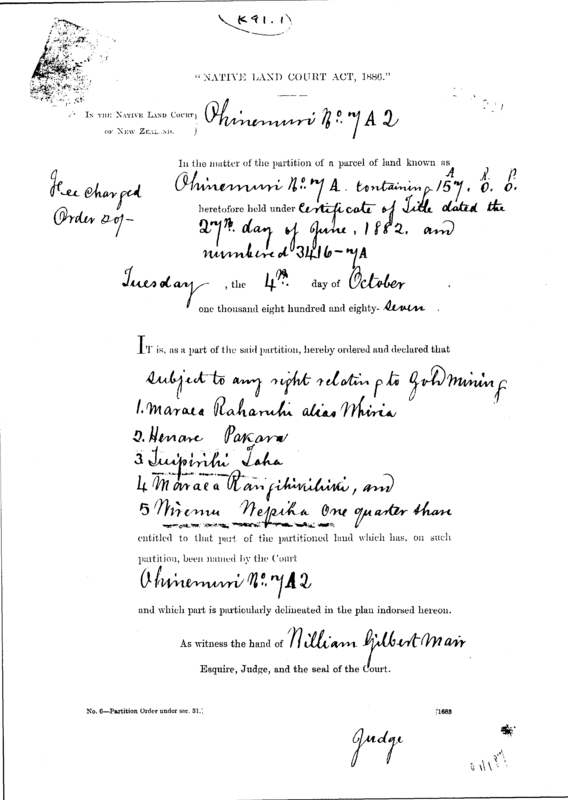 (K91.1)
"NATIVE LAND COURT ACT, 1886."
IN THE NATIVE LAND COURT
OF NEW ZEALAND.
Ohinemuri No. 7A2
In the matter of the partition of a parcel of land known as
Fee Charged
Order 20/-
A. R. P.
Ohinemuri No. 7A. containing 157. 0. 0.
heretofore held under Certificate of Title dated the
27th. day of June. 1882. and
numbered 3416-7A
Tuesday, the 4th day of October
one thousand eight hundred and eighty-seven.
IT is, as a part of the said partition, hereby ordered and declared that
subject to any right relating to Gold Mining
1. Maraea Raharuhi alias Whiria
2. Henare Pakara
3 Tuipirihi Taha
4 Maraea Rangihikihiki, and
5 Wiremu Nepiha One quarter share
entitled to that part of the partitioned land which has, on such
partition, been named by the Court
Ohinemuri No. 7A2
and which part is particularly delineated in the plan indorsed hereon.
As witness the hand of William Gilbert Mair
Esquire, Judge, and the seal of the Court.
No. 6—Partition Order under sec. 31.]
[1683
Judge